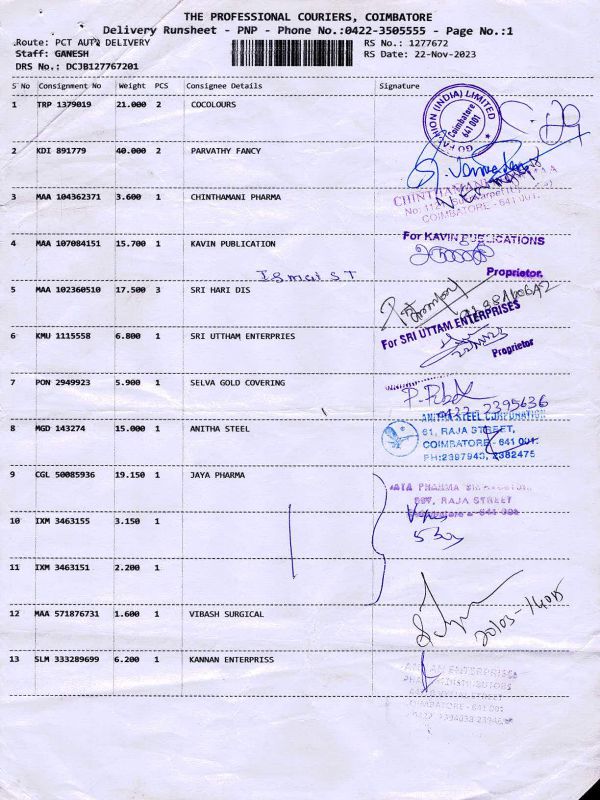 THE PROFESSIONAL COURIERS, COIMBATORE
Delivery Runsheet - PNP - Phone No.:0422-3505555 - Page No.:1
Route: PCT AUTO DELIVERY RS No.: 1277672
Staff: GANESH RS Date: 22-Nov-2023
DRS No.: DCJB127767201
S No Consignment No Weight PCS Consignee Details Signature
1 TRP 1379019 21.000 2 COCOLOURS
GO FASHION (INDIA) LIMITED
Coimbatore
641 001
2 KDI 891779 40.000 2 PARVATHY FANCY
3 MAA 104362371 3.600 1 CHINTHAMANI PHARMA
CHINTHAMANI
COIMBATORE - 641 001.
4 MAA 107084151 15.700 1 KAVIN PUBLICATION
For KAVIN PUBLICATIONS
Proprietor.
5 MAA 102360510 17.500 3 SRI HARI DIS
6 KMU 1115558 6.800 1 SRI UTTHAM ENTERPRIES
For SRI UTTAM ENTERPRISES
Proprietor
7 PON 2949923 5.900 1 SELVA GOLD COVERING
0422-2395636
8 MGD 143274 15.000 1 ANITHA STEEL
ANITHA STEEL CORPORATION
61, RAJA STREET,
COIMBATORE - 641 001.
PH:2397943, 2382475
9 CGL 50085936 19.150 1 JAYA PHARMA
JAYA PHARMA
RAJA STREET
10 IXM 3463155 3.150 1
11 IXM 3463151 2.200 1
12 MAA 571876731 1.600 1 VIBASH SURGICAL
13 SLM 333289699 6.200 1 KANNAN ENTERPRISS
ENTERPRISES